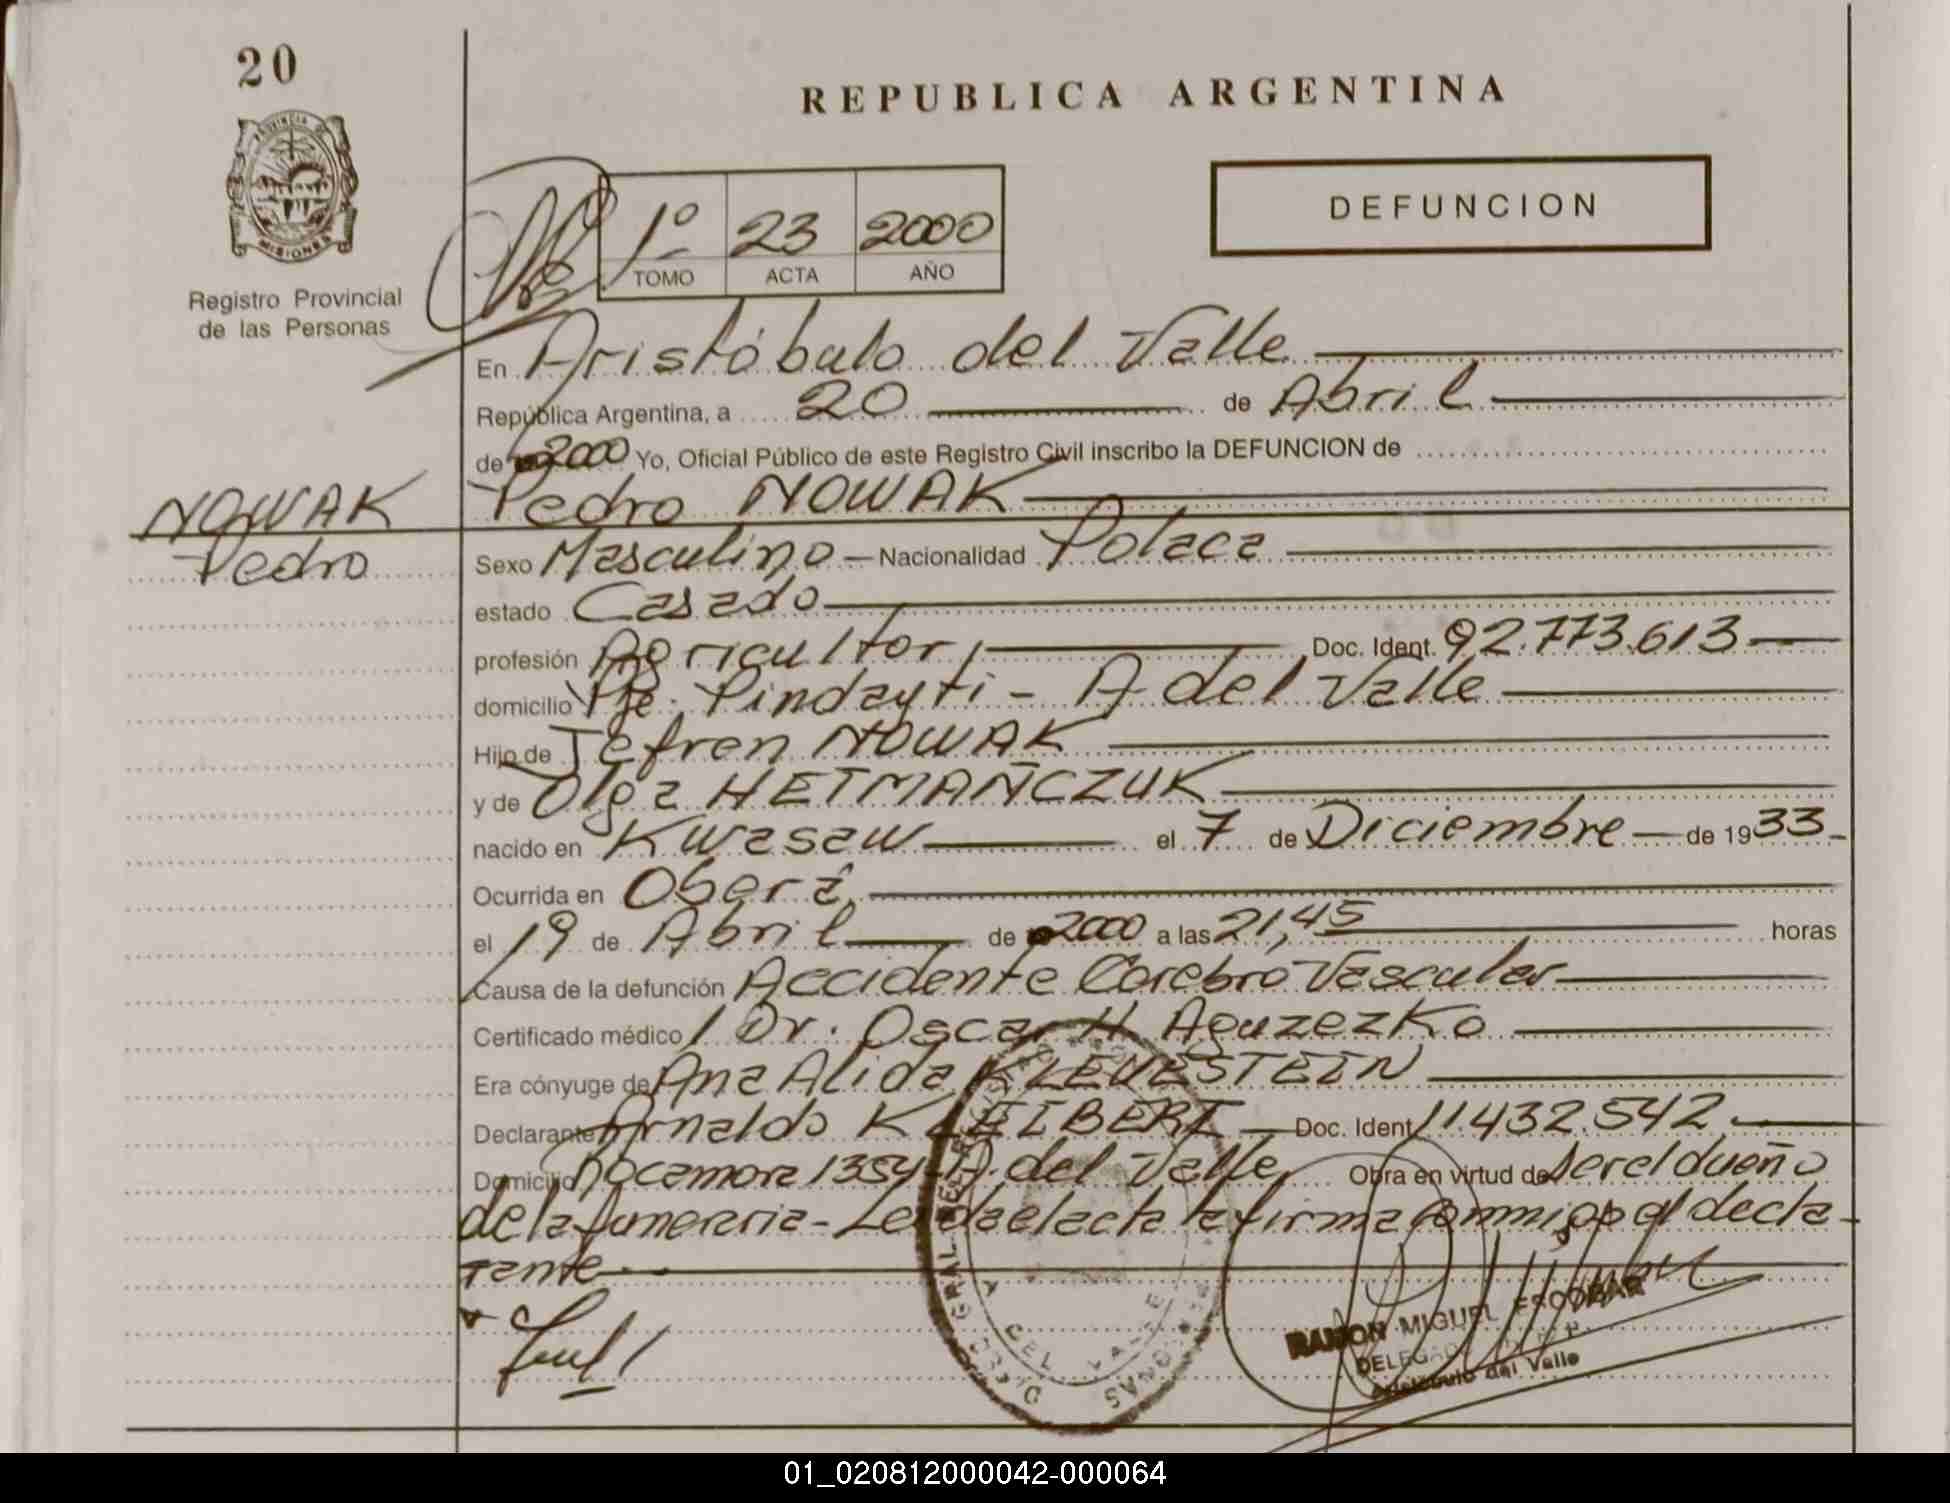 20
REPUBLICA ARGENTINA
PROVINCIA DE
MISIONES
Registro Provincial
de las Personas
1º 23 2000
TOMO ACTA AÑO
DEFUNCION
En Aristóbulo del Valle
República Argentina, a 20 de Abril
de 2000 Yo, Oficial Público de este Registro Civil inscribo la DEFUNCION de
NOWAK
Pedro
Pedro NOWAK
Sexo Masculino - Nacionalidad Polaca
estado Casado
profesión Agricultor Doc. Ident. 92.773.613
domicilio Pje. Pindayti - A. del Valle
Hijo de Jefren NOWAK
y de Olga HETMAÑCZUK
nacido en Kwasaw el 7 de Diciembre de 1933
Ocurrida en Oberá
el 19 de Abril de 2000 a las 21,45 horas
Causa de la defunción Accidente Cerebro Vascular
Certificado médico Dr. Oscar H. Aguzezko
Era cónyuge de Ana Alida KLEUESTEIN
Declarante Arnaldo KLEIBERT Doc. Ident 11.432.542
Domicilio Rocamora 1354 A. del Valle Obra en virtud de ser el dueño
de la funeraria - Leída el acta la firma conmigo el decla-
rante
RAMON MIGUEL ESCOBAR
DELEGADO
Aristóbulo del Valle
01_020812000042-000064